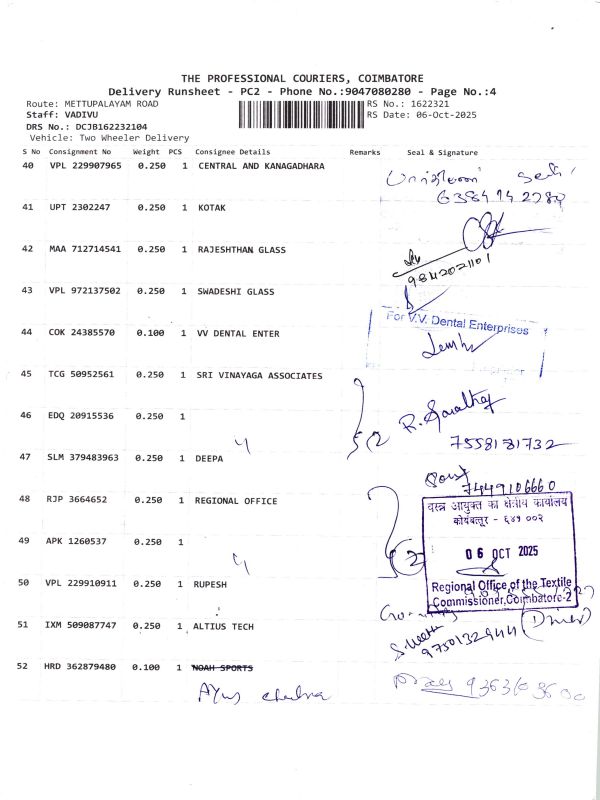 THE PROFESSIONAL COURIERS, COIMBATORE
Delivery Runsheet - PC2 - Phone No.:9047080280 - Page No.:4
Route: METTUPALAYAM ROAD
RS No.: 1622321
Staff: VADIVU
RS Date: 06-Oct-2025
DRS No.: DCJB162232104
Vehicle: Two Wheeler Delivery
S No Consignment No Weight PCS Consignee Details Remarks Seal & Signature
40 VPL 229907965 0.250 1 CENTRAL AND KANAGADHARA
6384142780
41 UPT 2302247 0.250 1 KOTAK
42 MAA 712714541 0.250 1 RAJESHTHAN GLASS
9842021101
43 VPL 972137502 0.250 1 SWADESHI GLASS
For V.V. Dental Enterprises
44 COK 24385570 0.100 1 VV DENTAL ENTER
45 TCG 50952561 0.250 1 SRI VINAYAGA ASSOCIATES
46 EDQ 20915536 0.250 1
7558181732
47 SLM 379483963 0.250 1 DEEPA
7449106660
48 RJP 3664652 0.250 1 REGIONAL OFFICE
वस्त्र आयुक्त का क्षेत्रीय कार्यालय
कोयंबत्तूर - ६४१ ००२
49 APK 1260537 0.250 1
06 OCT 2025
50 VPL 229910911 0.250 1 RUPESH
Regional Office of the Textile
Commissioner, Coimbatore-2
51 IXM 509087747 0.250 1 ALTIUS TECH
(Driver)
9750132944
52 HRD 362879480 0.100 1 NOAH SPORTS